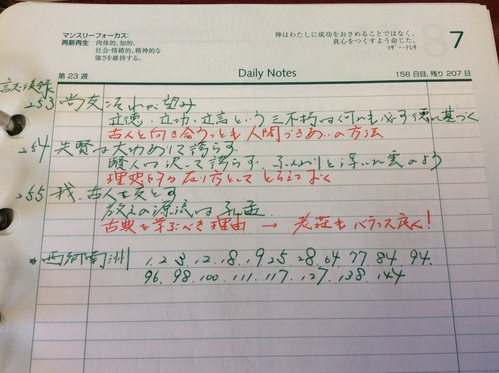 マンスリーフォーカス:
再新再生 肉体的、知的、
社会・情緒的、精神的な
強さを維持する。
神はわたしに成功をおさめることではなく、
真心をつくすよう命じた。
マザー・テレサ
7
第23週
Daily Notes
158日目、残り207日
253 尚友
立徳・立功・立言という三不朽は何れも必ず徳に基づく
古人と向き合うっとも人間づきあいの方法
254 先賢は大功あれど誇らず
賢人は決して誇らず、ふんわりと浮いた雲のよう
理想的な在り方としてとらえておく
255 我、古人を友とす
教えの源流は孔孟
古典を学ぶべき理由 → 老荘もバランス良く!
*西郷南洲 1. 2. 3. 12. 18. 19 25. 28. 64. 77. 84. 94.
96. 98. 100. 111. 117. 127. 138. 144